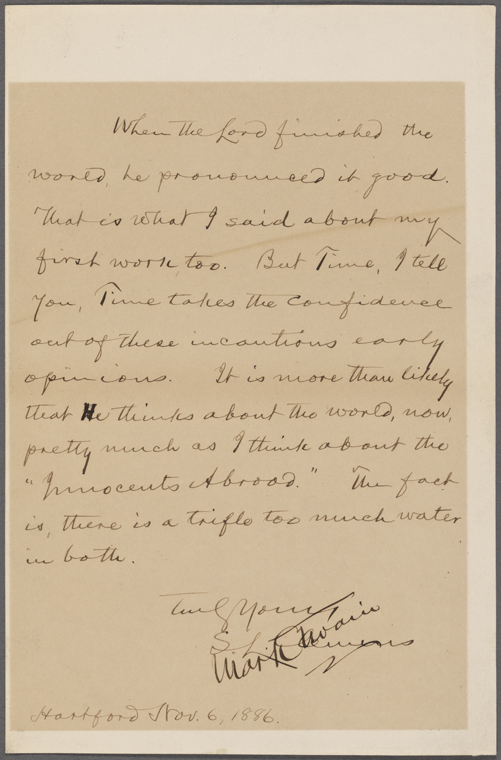 When the Lord finished the
world, he pronounced it good.
That is what I said about my
first work, too. But Time, I tell
you, Time takes the confidence
out of these incautious early
opinions. It is more than likely
that He thinks about the world, now,
pretty much as I think about the
"Innocents Abroad." The fact
is, there is a trifle too much water
in both.
Truly Yours
S. L. Clemens
Mark Twain
Hartford Nov. 6, 1886.